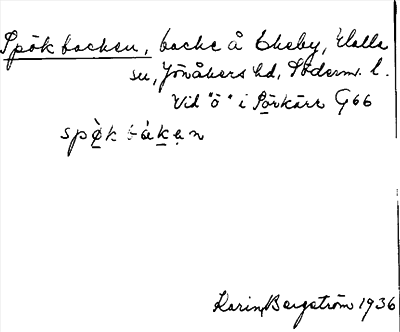 Spökbacken, backe å Ekeby, Halla
sn, Jönåkers hd, Söderm. l.
Vid "ö" i Sörkärr G 66
spök bakən
Karin Bergström 1936